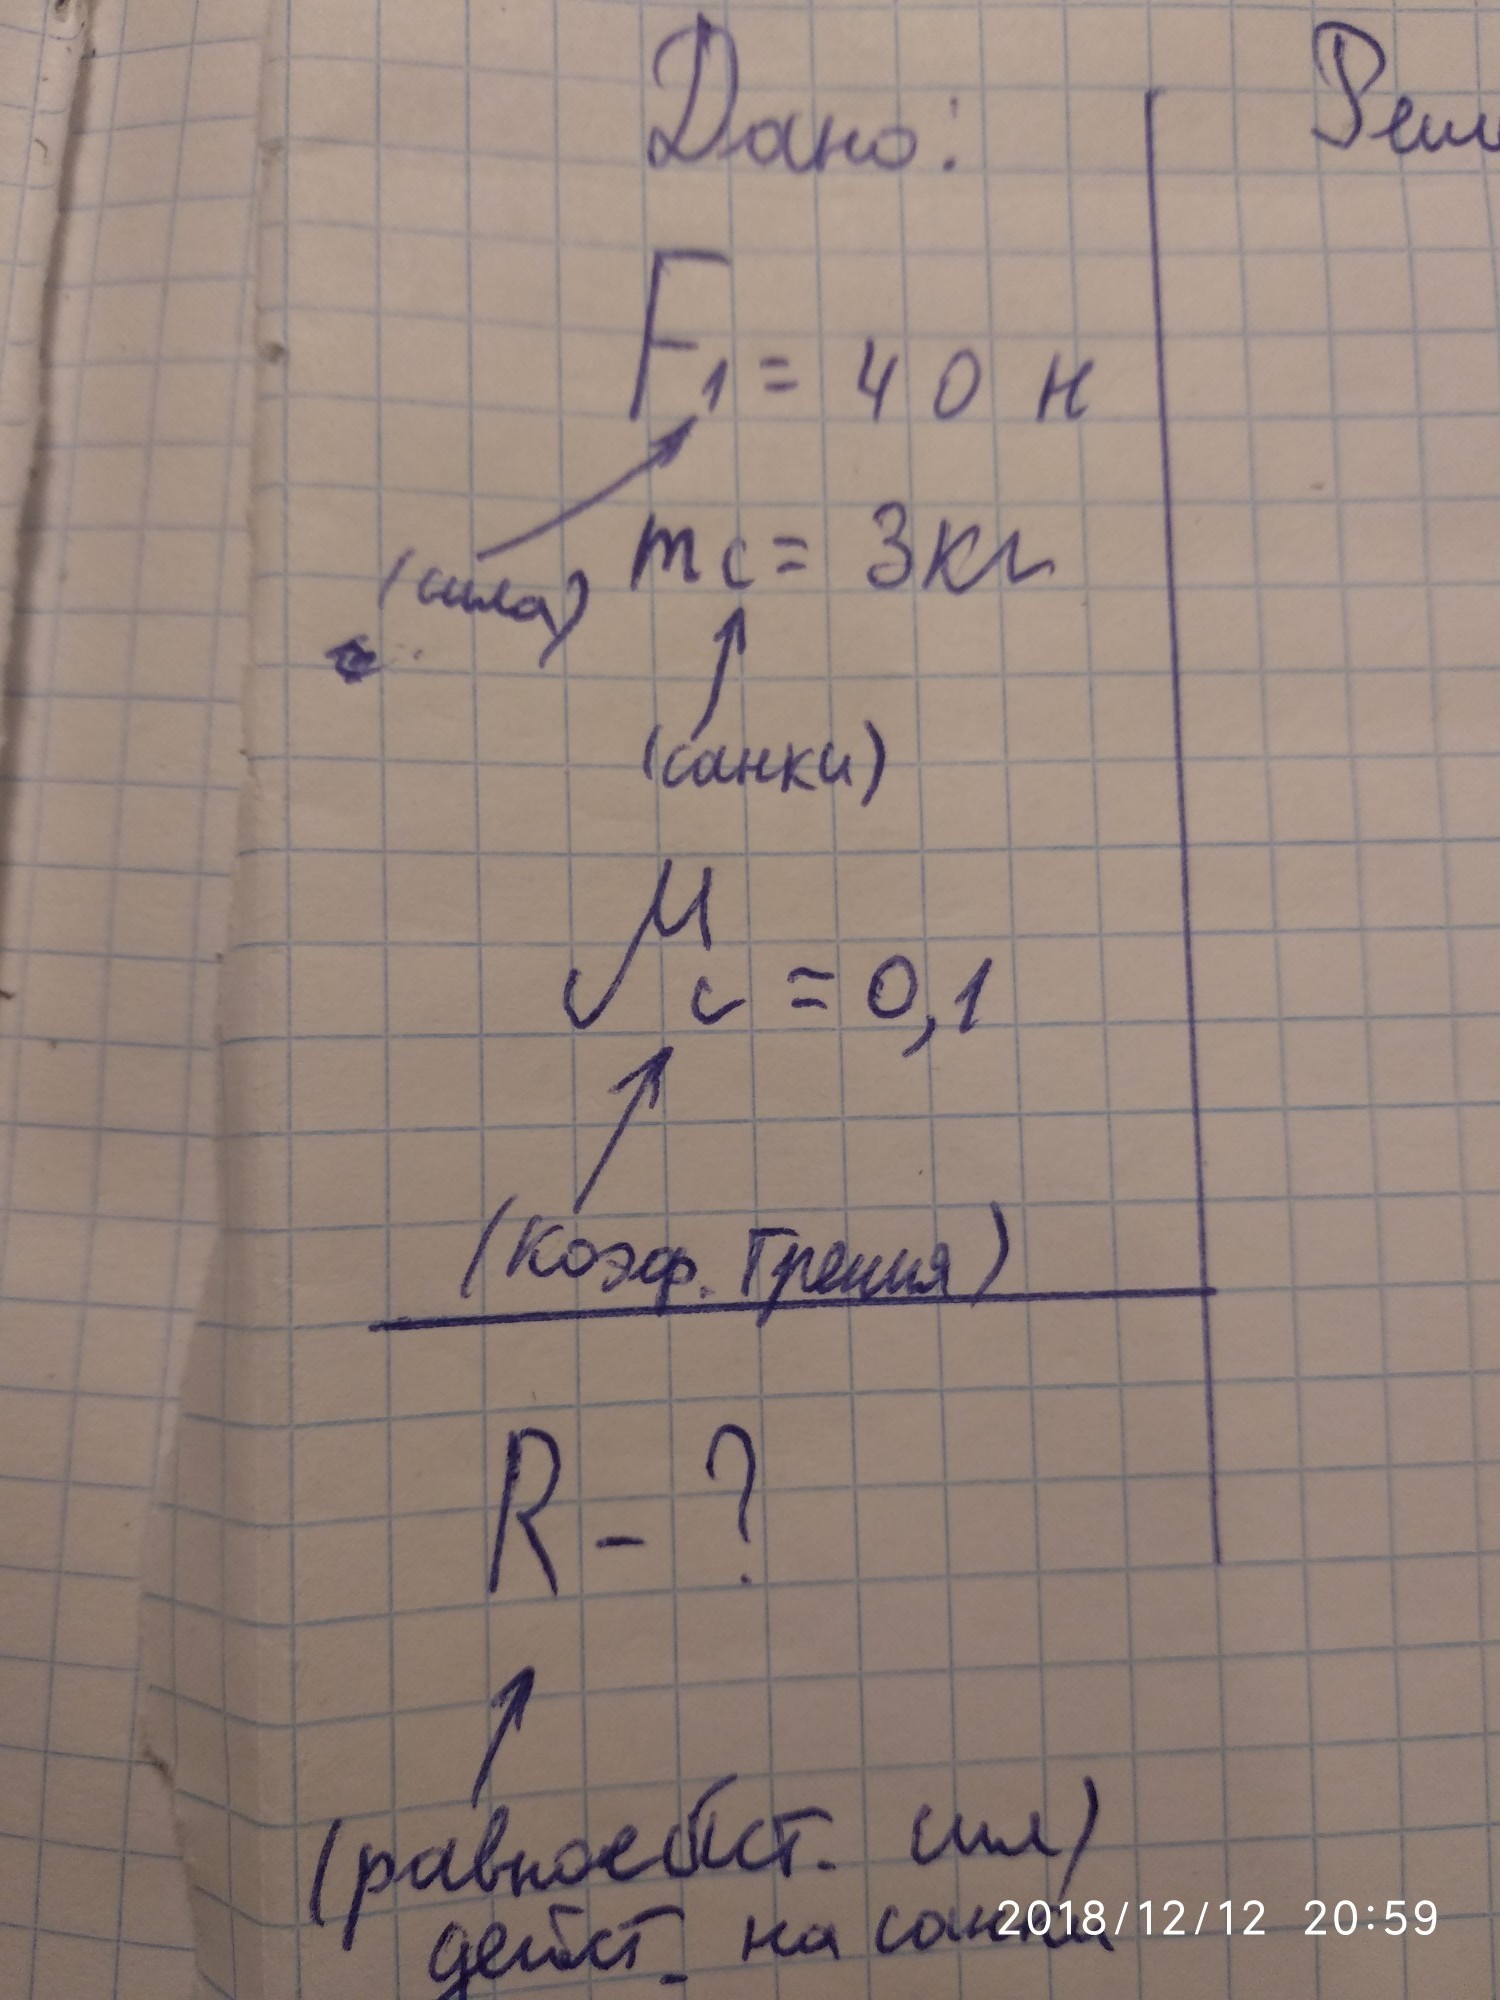 Дано:
Реш
F1 = 40 н
(сила)
mc = 3кг
(санки)
μc = 0,1
(Коэф. Трения)
R - ?
(равнодейст. сил)
дейст. на санки
2018/12/12 20:59